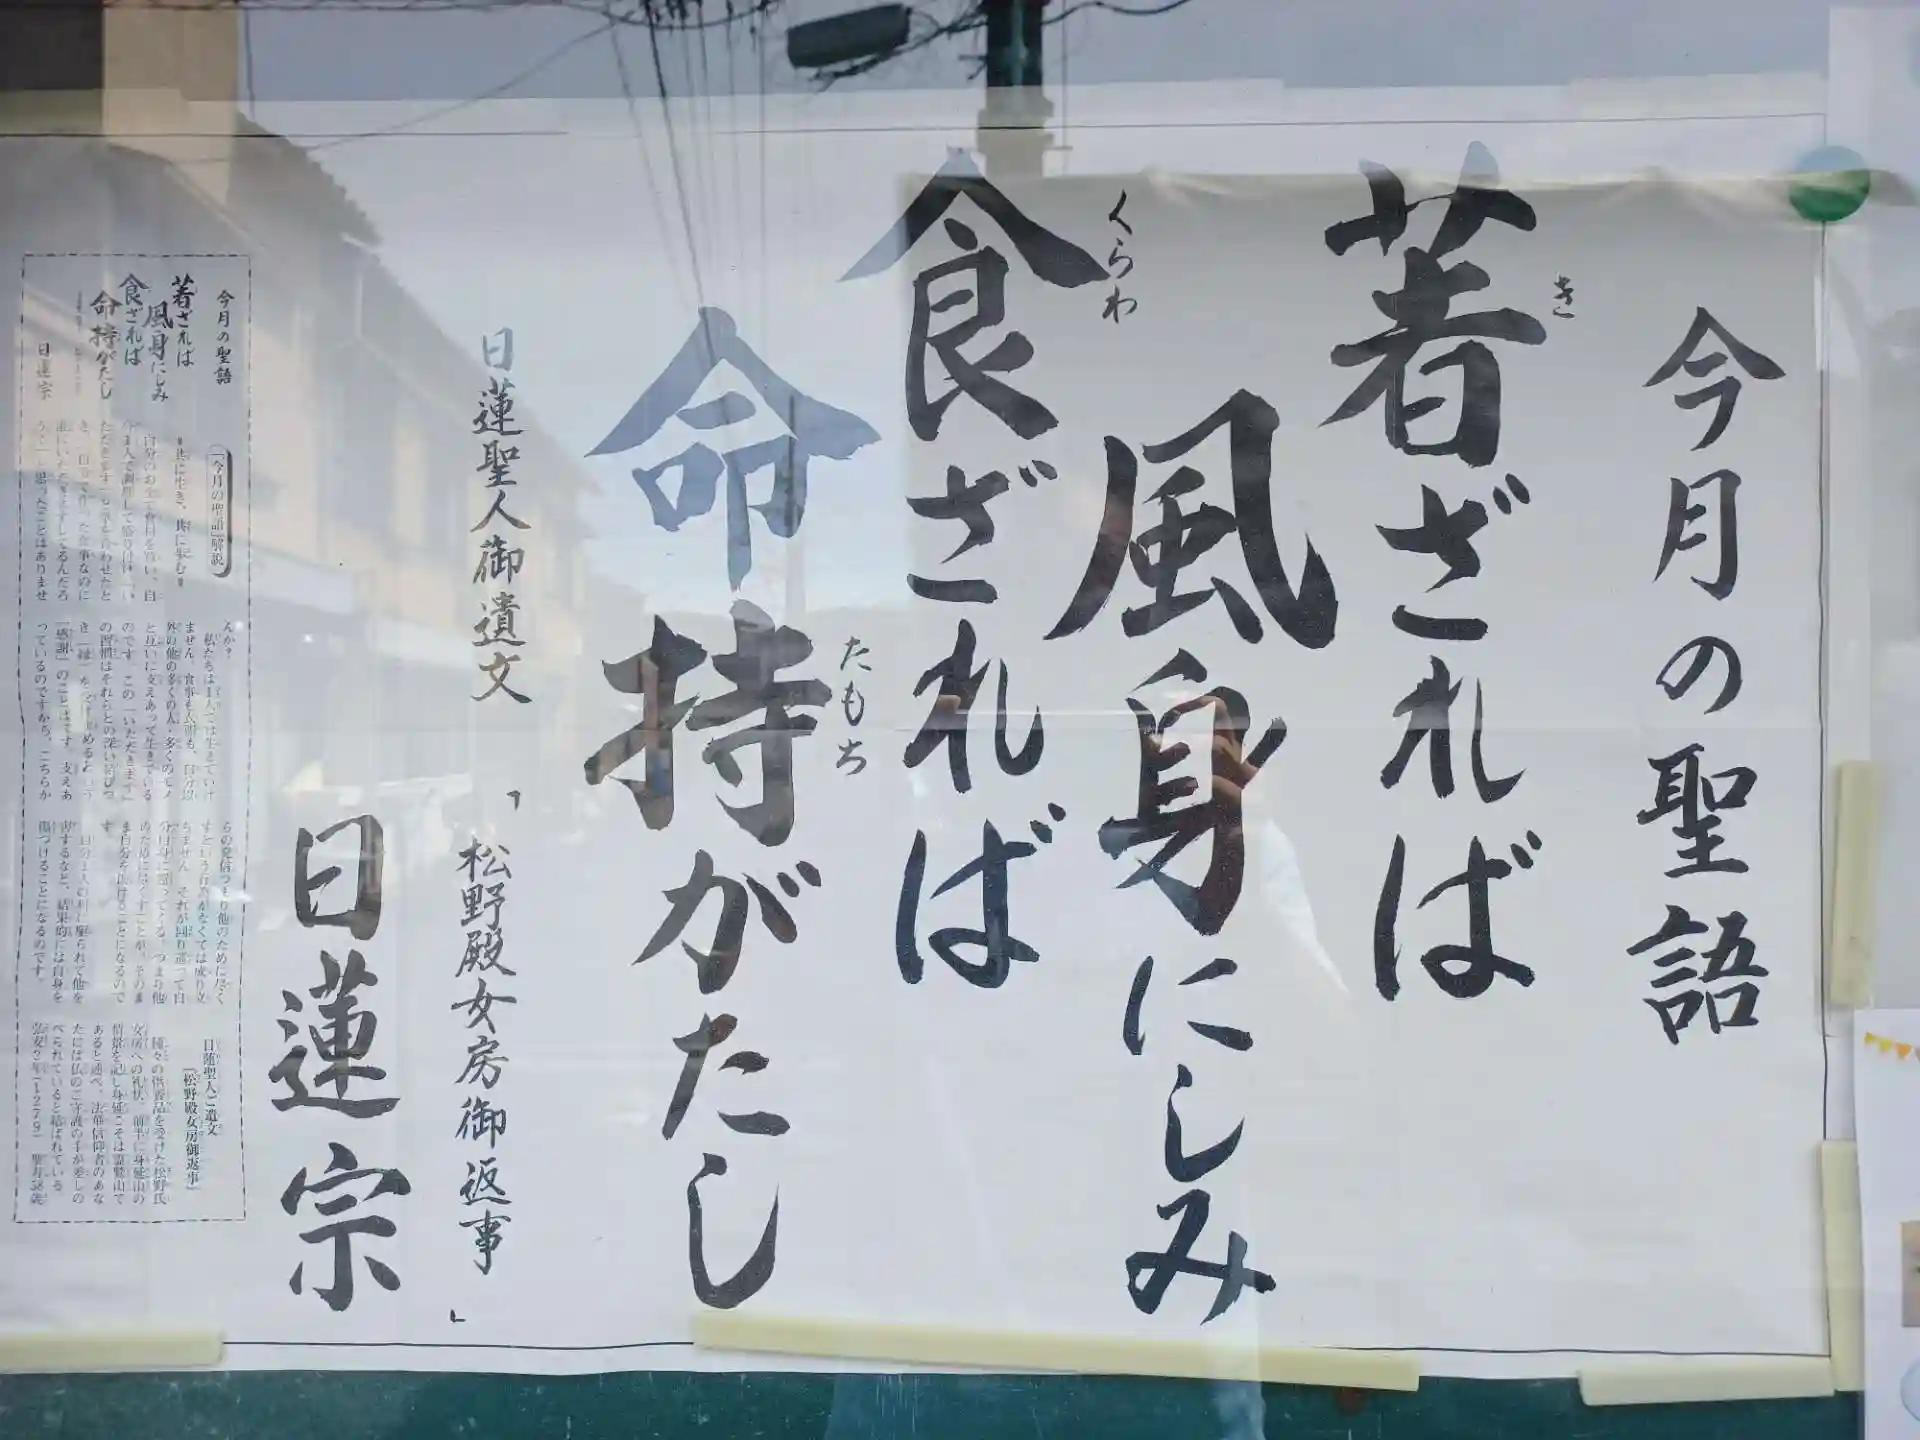 今月の聖語
着ざれば
き
風身にしみ
食ざれば
くらわ
命持がたし
たもち
日蓮聖人御遺文
「松野殿女房御返事」
日蓮宗
今月の聖語
着ざれば
風身にしみ
食ざれば
命持がたし
日蓮宗
「今月の聖語」解説
＝共に生き、共に歩む＝
んか？
私たちは1人では生きていけ
ません。食事も衣服も、自分以
外の他の多くの人・多くのモノ
と互いに支えあって生きている
のです。この「いただきます」
の習慣はそれらとの深い結びつ
「感謝」のことばです。支えあ
っているのですから、こちらか
らの発信つまり他のために尽く
すという行為がなくては成り立
ちません。それが回り巡って自
分自身に還ってくる。つまり他
のために尽くすことが、そのま
ま自分を助けることになるので
す。
害するなど、結果的には自身を
傷つけることになるのです。
日蓮聖人ご遺文
「松野殿女房御返事」
種々の供養品を受けた松野氏
女房への礼状。前半に身延山の
情景を記し身延こそは霊鷲山で
あると述べ、法華信仰者のあな
たには仏のご守護の手が差しの
べられていると結ばれている。
弘安2年（1279）聖寿58歳